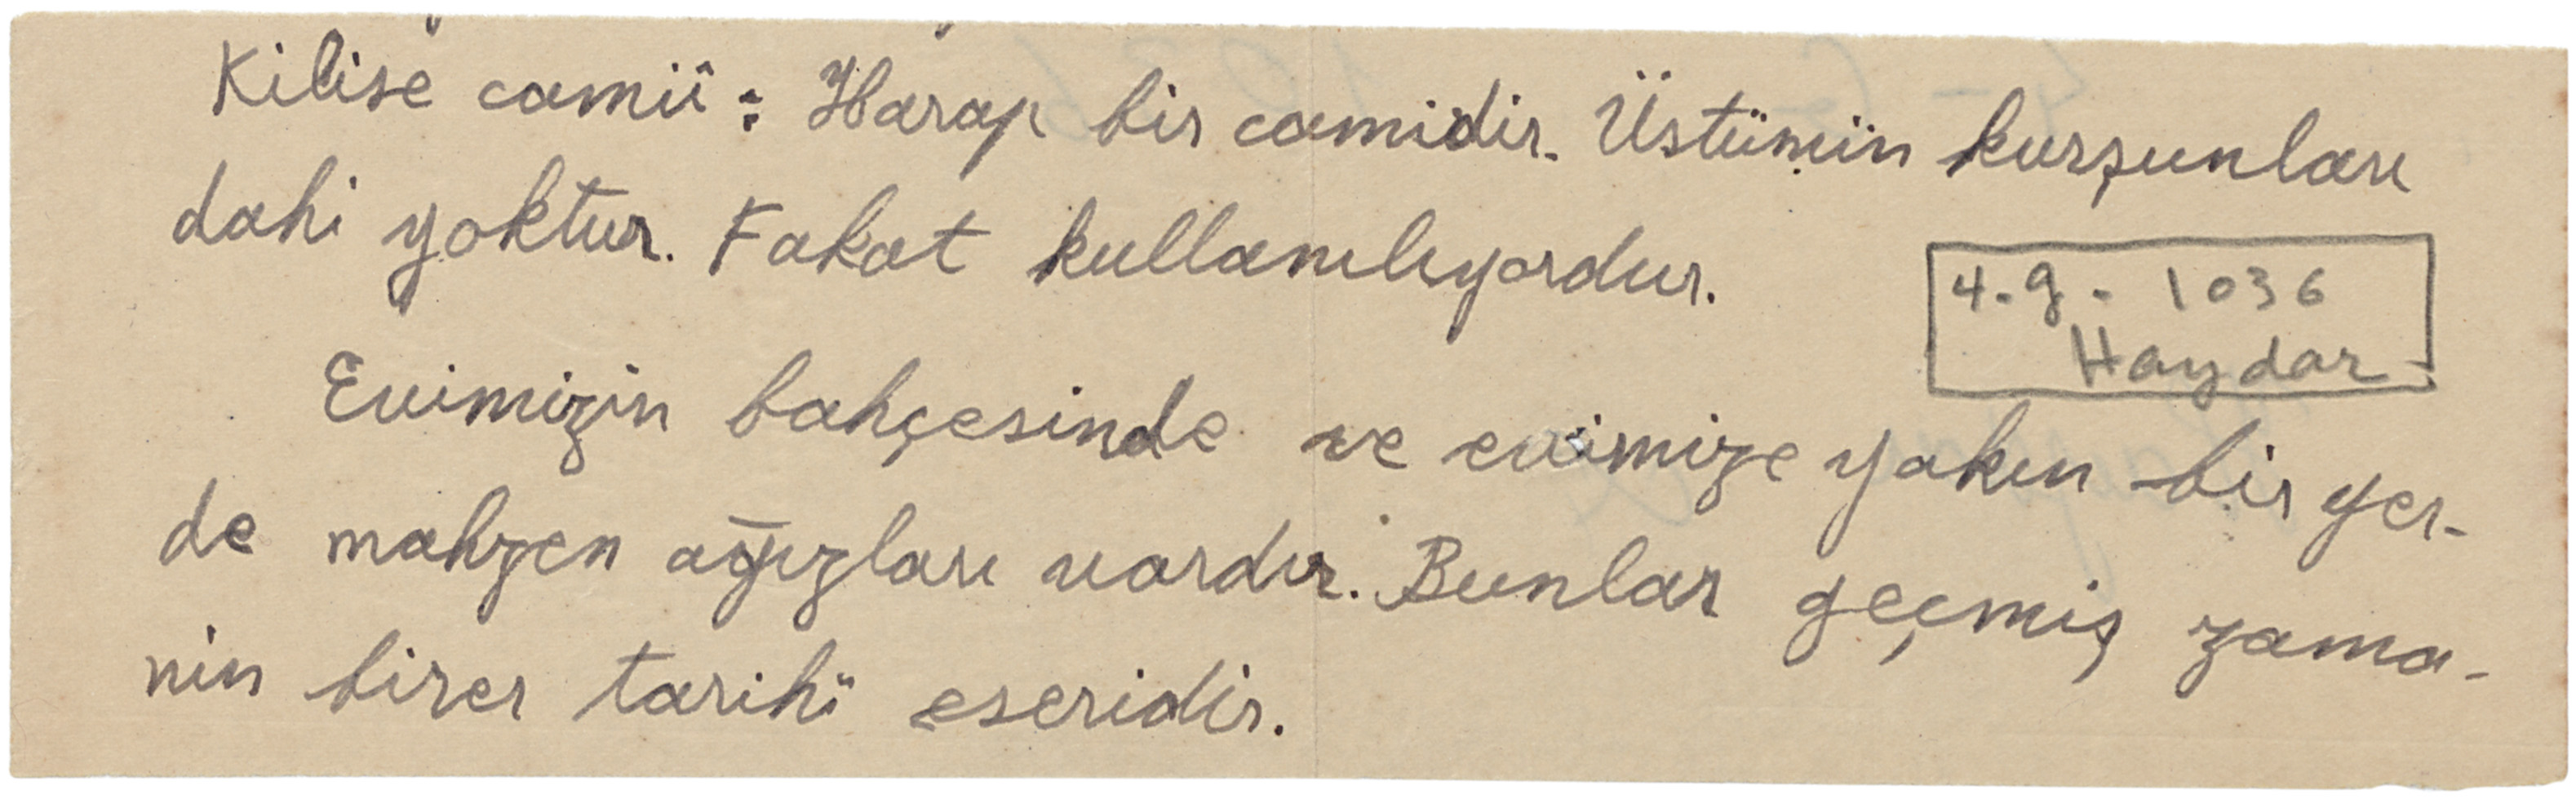 Kilise camiî: Harap bir camidir. Üstünün kurşunları
dahi yoktur. Fakat kullanılıyordur.
4.9. 1036
Haydar
Evimizin bahçesinde ve evimize yakın bir yer-
de mahzen ağızları vardır. Bunlar geçmiş zama-
nin birer tarihî eseridir.